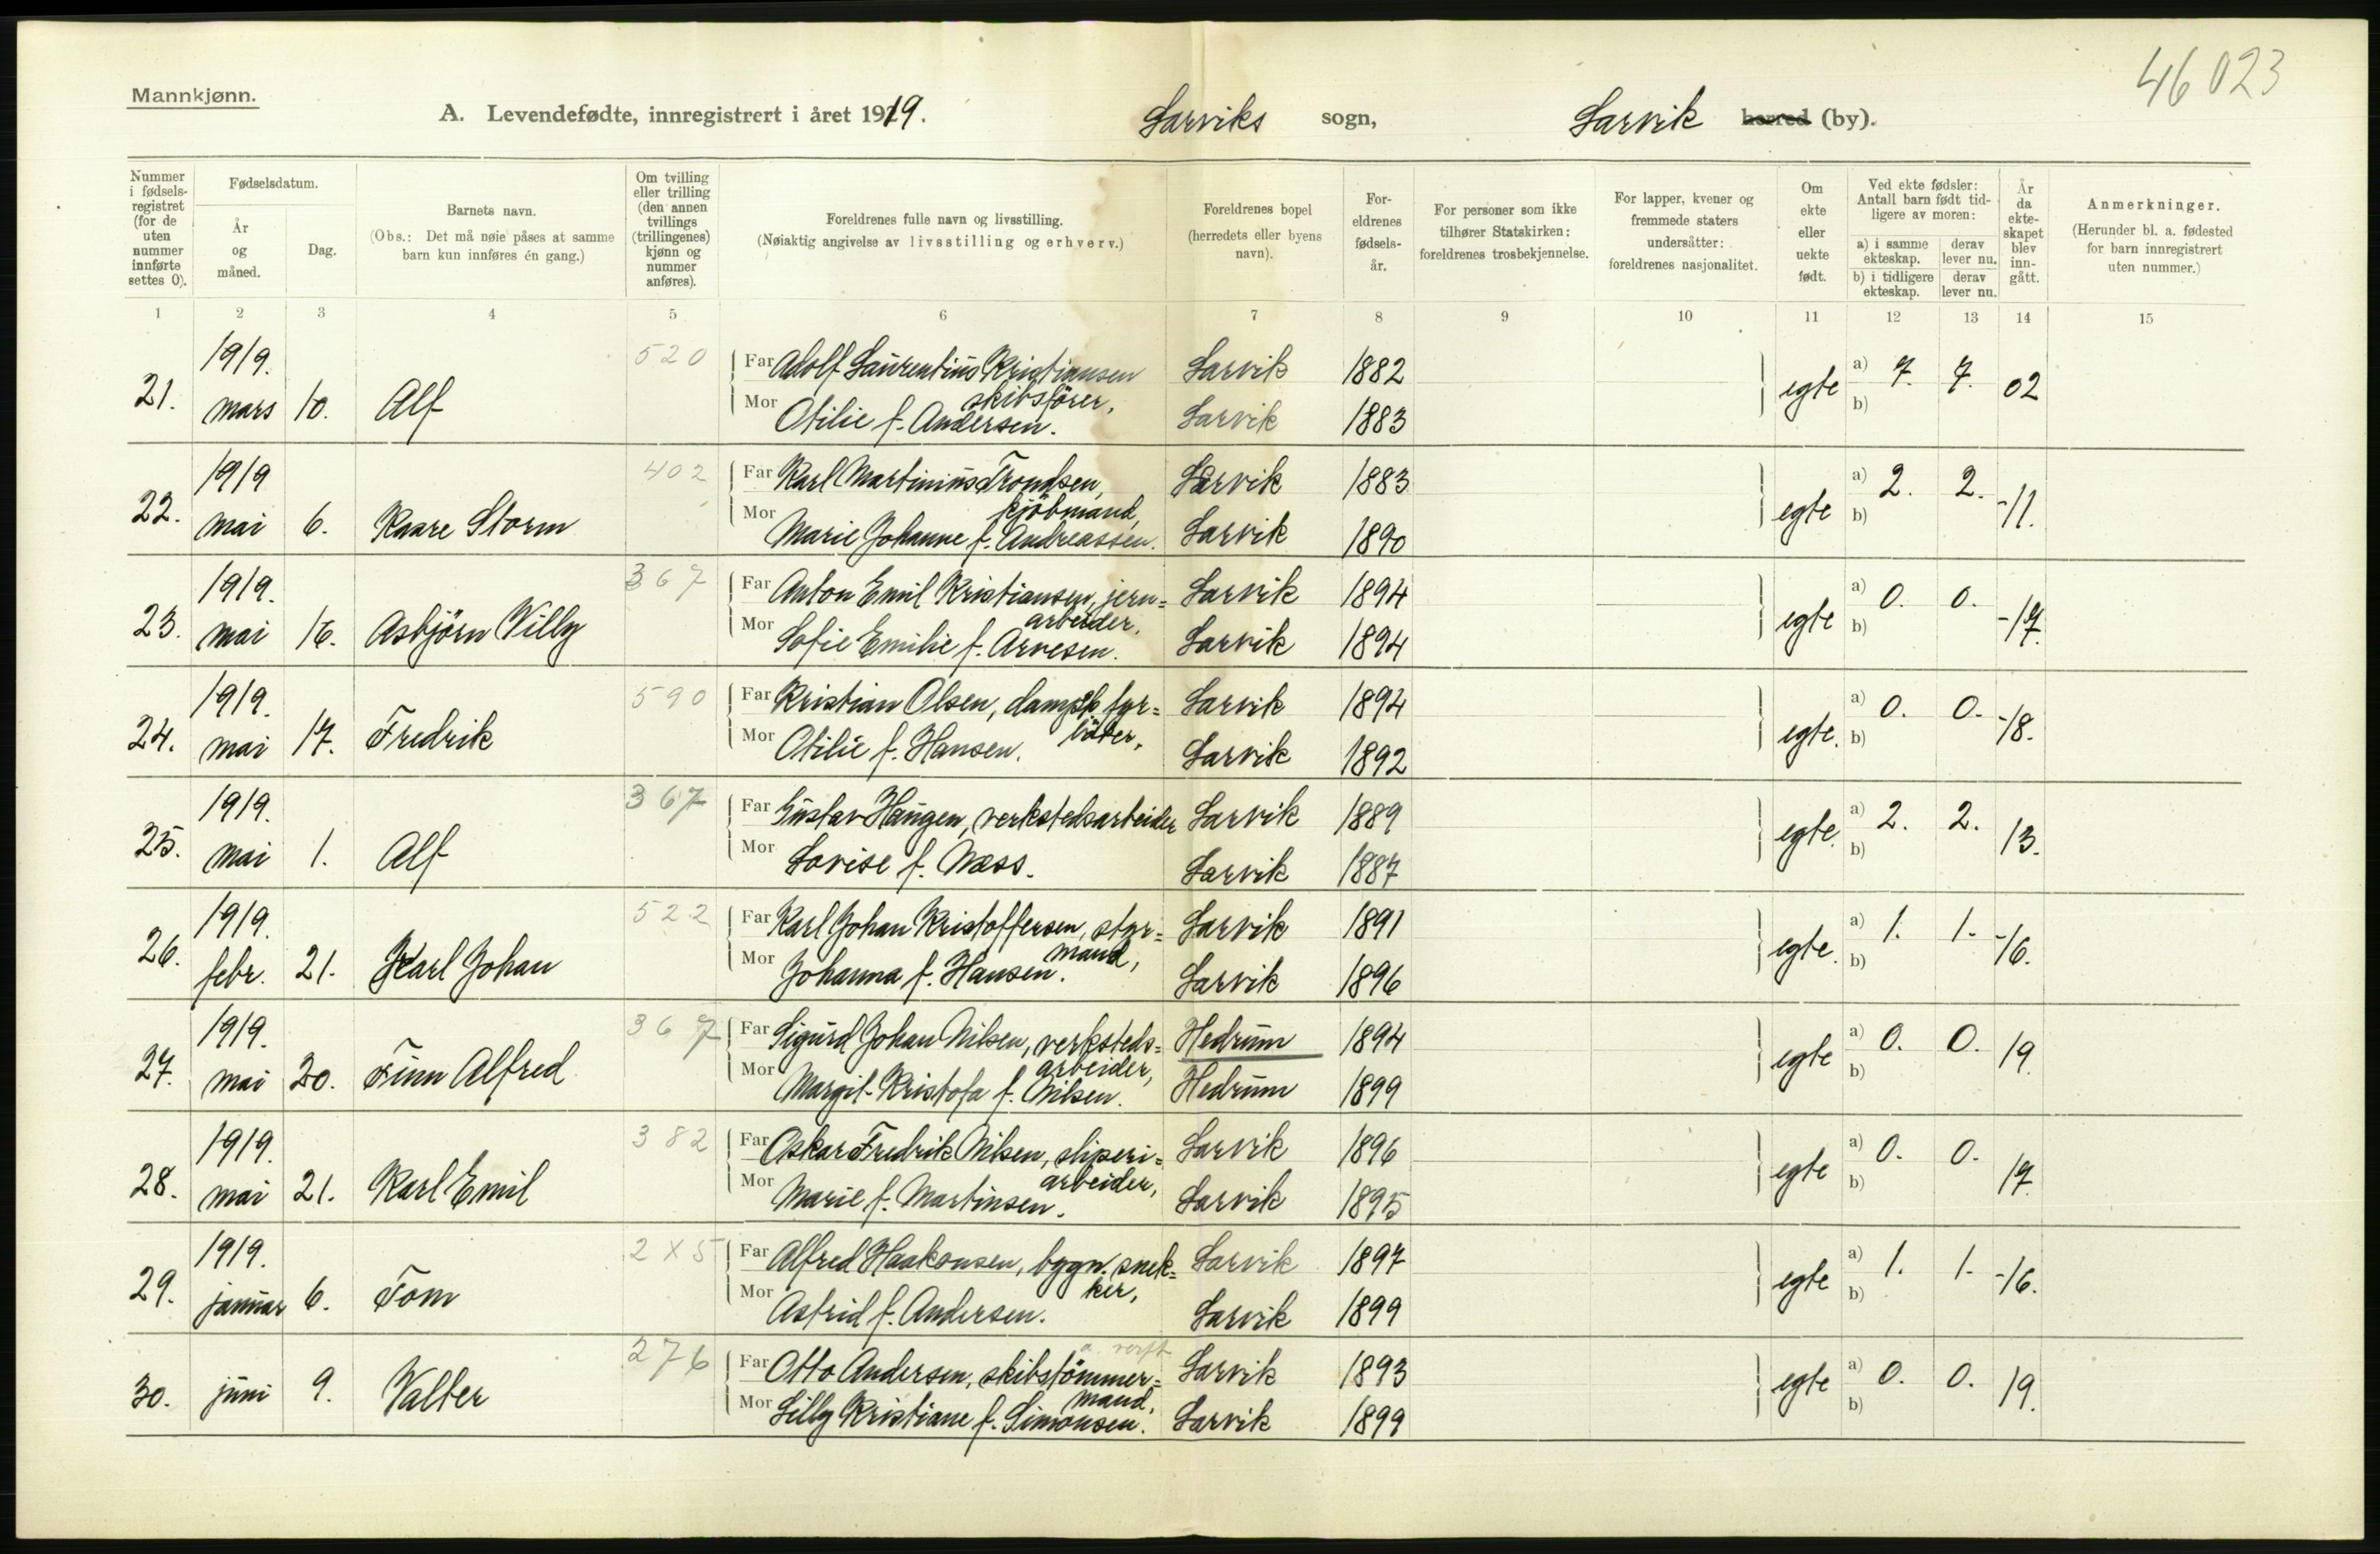 46023
Mannkjønn.
A. Levendefødte, innregistrert i året 1919. Larviks sogn, Larvik herred (by).
Nummer i fødsels-registret (for de uten nummer innførte settes 0).
Fødselsdatum.
År og måned.
Dag.
Barnets navn.
(Obs.: Det må nøie påses at samme barn kun innføres én gang.)
Om tvilling eller trilling (den annen tvillings (trillingenes) kjønn og nummer anføres).
Foreldrenes fulle navn og livsstilling.
(Nøiaktig angivelse av livsstilling og erhverv.)
Foreldrenes bopel (herredets eller byens navn).
For-eldrenes fødsels-år.
For personer som ikke tilhører Statskirken: foreldrenes trosbekjennelse.
For lapper, kvener og fremmede staters undersåtter: foreldrenes nasjonalitet.
Om ekte eller uekte født.
Ved ekte fødsler: Antall barn født tid-ligere av moren:
a) i samme ekteskap. derav lever nu.
b) i tidligere ekteskap. derav lever nu.
År da ekte-skapet blev inn-gått.
Anmerkninger.
(Herunder bl. a. fødested for barn innregistrert uten nummer.)
1 2 3 4 5 6 7 8 9 10 11 12 13 14 15
21. 1919. mars 10. Alf 520
Far Adolf Laurentius Kristiansen skibsfører, Larvik 1882
Mor Otilie f. Andersen. Larvik 1883
egte a) 7. 7. b) 02
22. 1919 mai 6. Kaare Storm 402
Far Karl Martinius Trondsen, kjöbmand, Larvik 1883
Mor Marie Johanne f. Andreassen. Larvik 1890
egte a) 2. 2. b) -11.
23. 1919. mai 16. Asbjörn Villy 367
Far Anton Emil Kristiansen, jern=arbeider, Larvik 1894
Mor Sofie Emilie f. Arvesen. Larvik 1894
egte a) 0. 0. b) -17.
24. 1919. mai 17. Fredrik 590
Far Kristian Olsen, dampsk fyr=böter, Larvik 1894
Mor Otilie f. Hansen. Larvik 1892
egte. a) 0. 0. b) -18.
25. 1919. mai 1. Alf 367
Far Gustav Haugen, verkstedsarbeider Larvik 1889
Mor Lovise f. Næss. Larvik 1887
egte. a) 2. 2. b) 13.
26. 1919. febr. 21. Karl Johan 522
Far Karl Johan Kristoffersen, styr=mand, Larvik 1891
Mor Johanna f. Hansen. Larvik 1896
egte. a) 1. 1. b) -16.
27. 1919. mai 20. Finn Alfred 367
Far Sigurd Johan Nilsen, verksteds=arbeider, Hedrum 1894
Mor Margit Kristofa f. Nilsen. Hedrum 1899
egte a) 0. 0. b) 19
28. 1919. mai 21. Karl Emil 382
Far Oskar Fredrik Nilsen, sliperi=arbeider, Larvik 1896
Mor Marie f. Martinsen. Larvik 1895
egte a) 0. 0. b) 17
29. 1919. januar 6. Tom 2X5
Far Alfred Haakonsen, bygn. snek=ker, Larvik 1897
Mor Astrid f. Andersen. Larvik 1899
egte a) 1. 1. b) -16.
30. juni 9. Valter 276
Far Otto Andersen, skibstömmer=mand, Larvik 1893
Mor Lilly Kristiane f. Simonsen. Larvik 1899
egte a) 0. 0. b) 19.